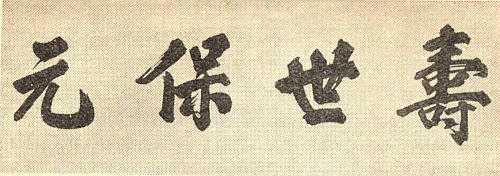 壽世保元